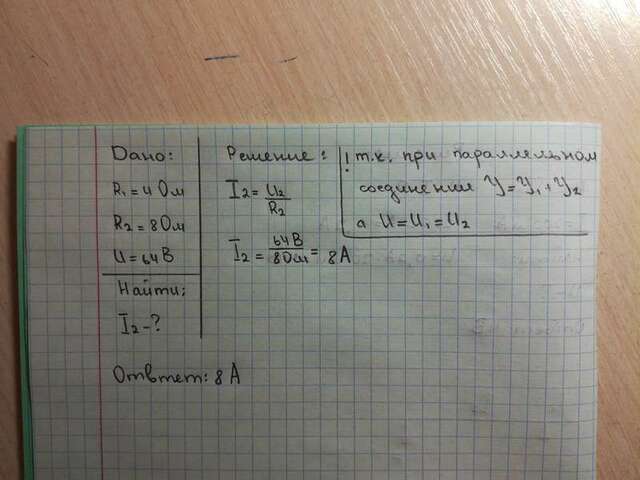 Дано:
R₁ = 4 Ом
R₂ = 8 Ом
U = 64 В
Найти:
I₂ - ?
Решение:
I₂ = U₂/R₂
I₂ = 64 В/8 Ом = 8 А
! т.к. при параллельном
соединении У = У₁ + У₂
а U = U₁ = U₂
Ответ: 8 А